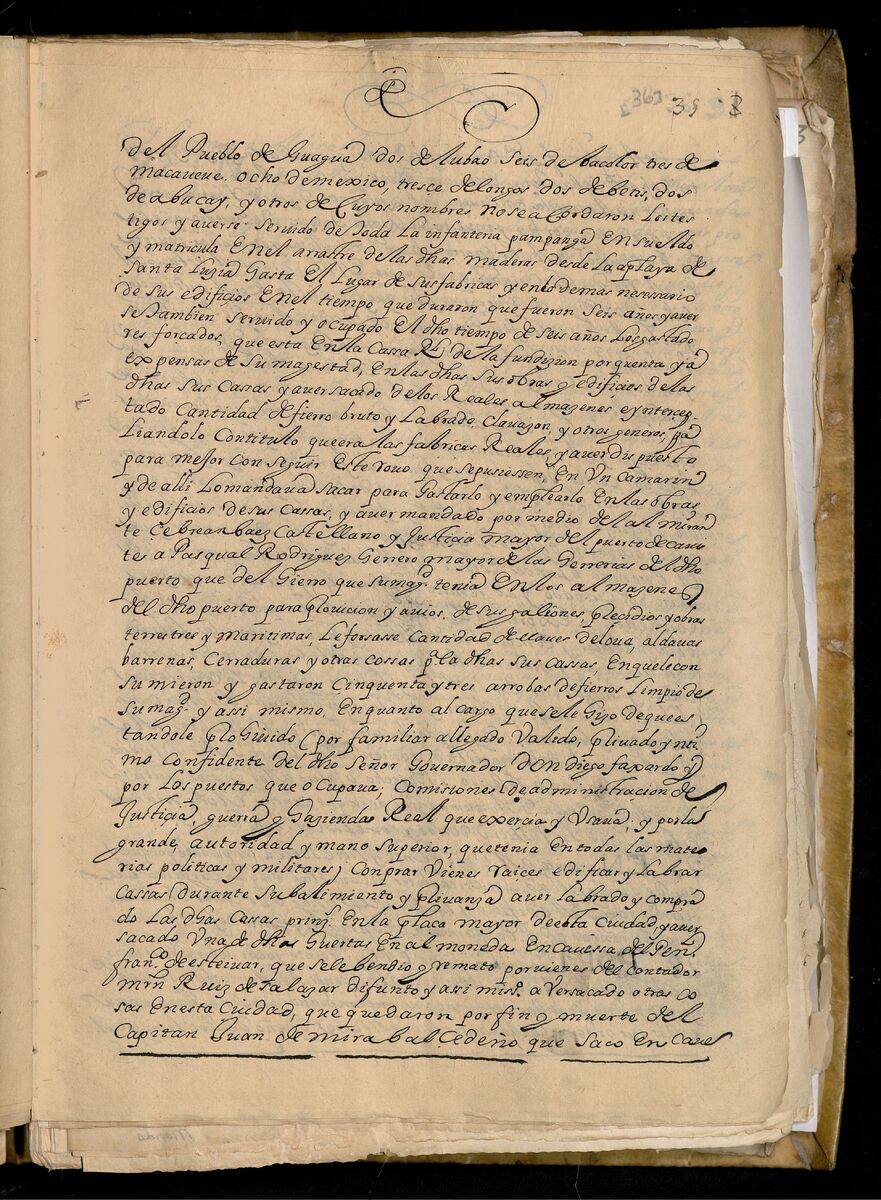 363 39
del Pueblo de Guagua dos de lubao seis de bacolor tres de
macaveve. ocho de mexico, tresce delongos dos de betis, dos
de abucay, y otros de Cuyos nombres nose a Cordaron Los tes
tigos y averse servido de toda La infanteria pampanga En sueldo
y matricula En el arrastre de las dhas maderas desde La playa de
santa Luzia Gasta El Lugar de sus fabricas y enlodemas nessesario
de sus edificios En el tiempo que duraron que fueron seis años y aver
se tambien servido y ocupado El dho tiempo de seis años Los gastado
res forcados, que esta En la Cassa Rl. de la fundizion por quenta y a
expensas de su magestad, En las dhas sus obras y edificios de las
dhas sus Cassas y aver sacado de los Reales almazenes eyntercep
tado Cantidad de fierro bruto y Labrado, clavazon, y otros generos,
Liandolo Contitulo que era las fabricas Reales, y aver dispuesto
para mejor Conseguir Este rovo que se pusiessen, En Vn Camarin
y de alli Lo mandava sacar para Gastarlo y emplearlo En las obras
y edificios de sus Cassas, y aver mandado por medio del almiran
te Cebrean baez Castellano y Justicia mayor del puerto de cavi
te a Pasqual Rodriguez Gerrero mayor de las Gerrerias del dho
puerto que del Gierro que su magd. tenia En los almazenes
del dho puerto para provicion y avios, de sus galiones, precidios y obras
terrestres y maritimas, Le forsasse Cantidad de llaves de lova, aldavas
barrenas, Cerraduras y otras cossas pa. la dhas sus Cassas, En que le con
sumieron y gastaron Cinquenta y tres arrobas de fierros Limpio de
su magd. y assi mismo, En quanto al cargo que se le Gizo de que es
tandole proGivido (por familiar allegado Valido, privado y nti
mo Confidente del dho Señor Governador Don Diego faxardo y
por Los puestos que ocupava; Comisiones de administracion de
Justicia, guerra y Gazienda Real que exercia y Vsava; y por la
grande, autoridad y mano superior, que tenia En todas las mate
rias politicas y militares; Comprar Vienes raices edificar y Labrar
Cassas (durante su balimiento y privanza) aver labrado y compra
do Las dhas Cassas prinz. En la placa mayor de esta Ciudad, y aver
sacado Vna de dhas Guertas En almoneda En Caussa del Gen.
franco. de esteivar, que se le bendio y remato por vienes del contador
mrn Ruiz de salazar difunto y assi miso. aversacado otras co
sas En esta Ciudad, que quedaron por fin y muerte del
Capitan Juan de mirabal. Cedeño que saco En Caus